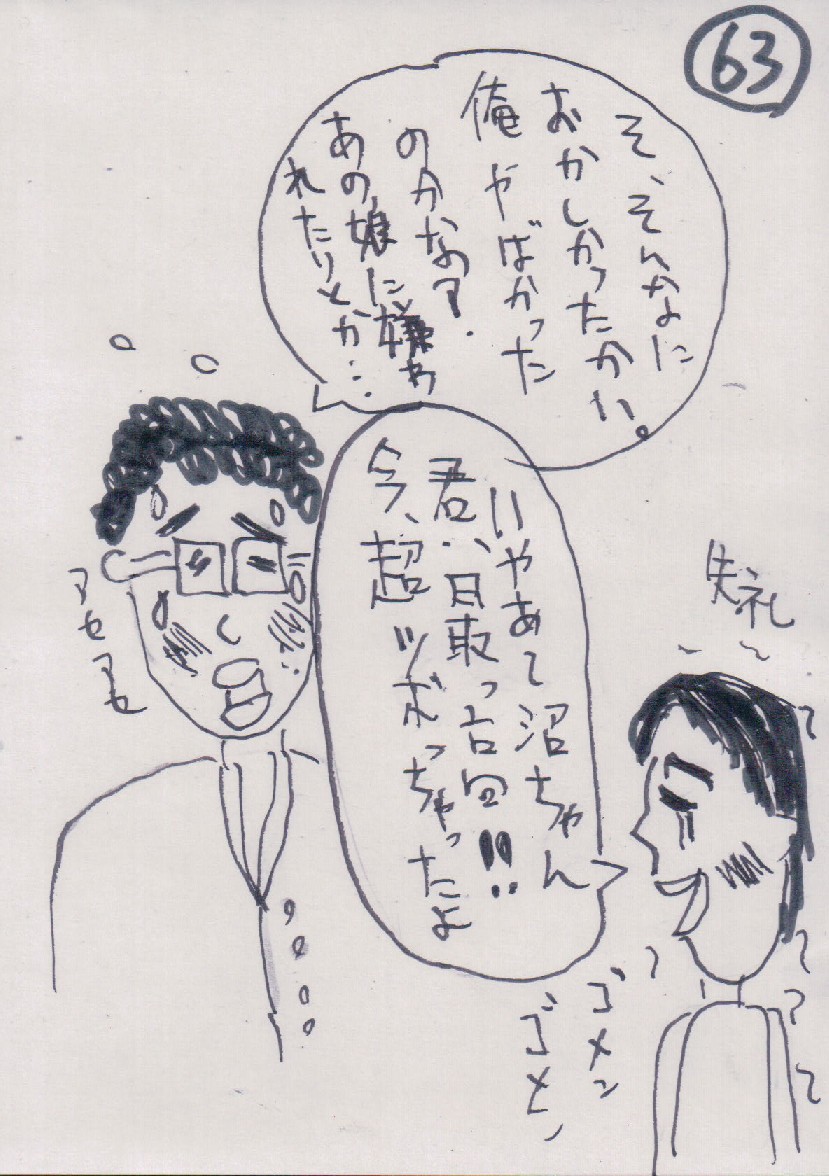 63
そ、そんなに
おかしかったかい。
俺やばかった
のかなア.
あの娘に嫌わ
れたりとか…
いやあ〜沼ちゃん
君、最高!!
今、超ツボっちゃったよ
失礼
アセアセ
ゴメン
ゴメン